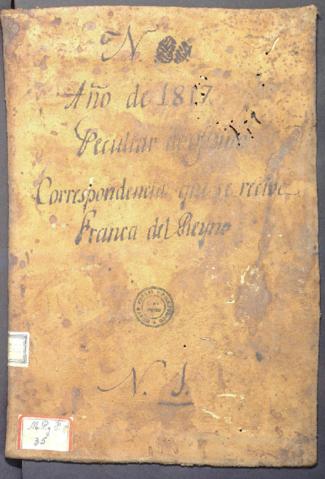 N.
Año de 1817.
Peculiar de
Correspondencia que se recive
Franca del Reyno
N. 1.
35